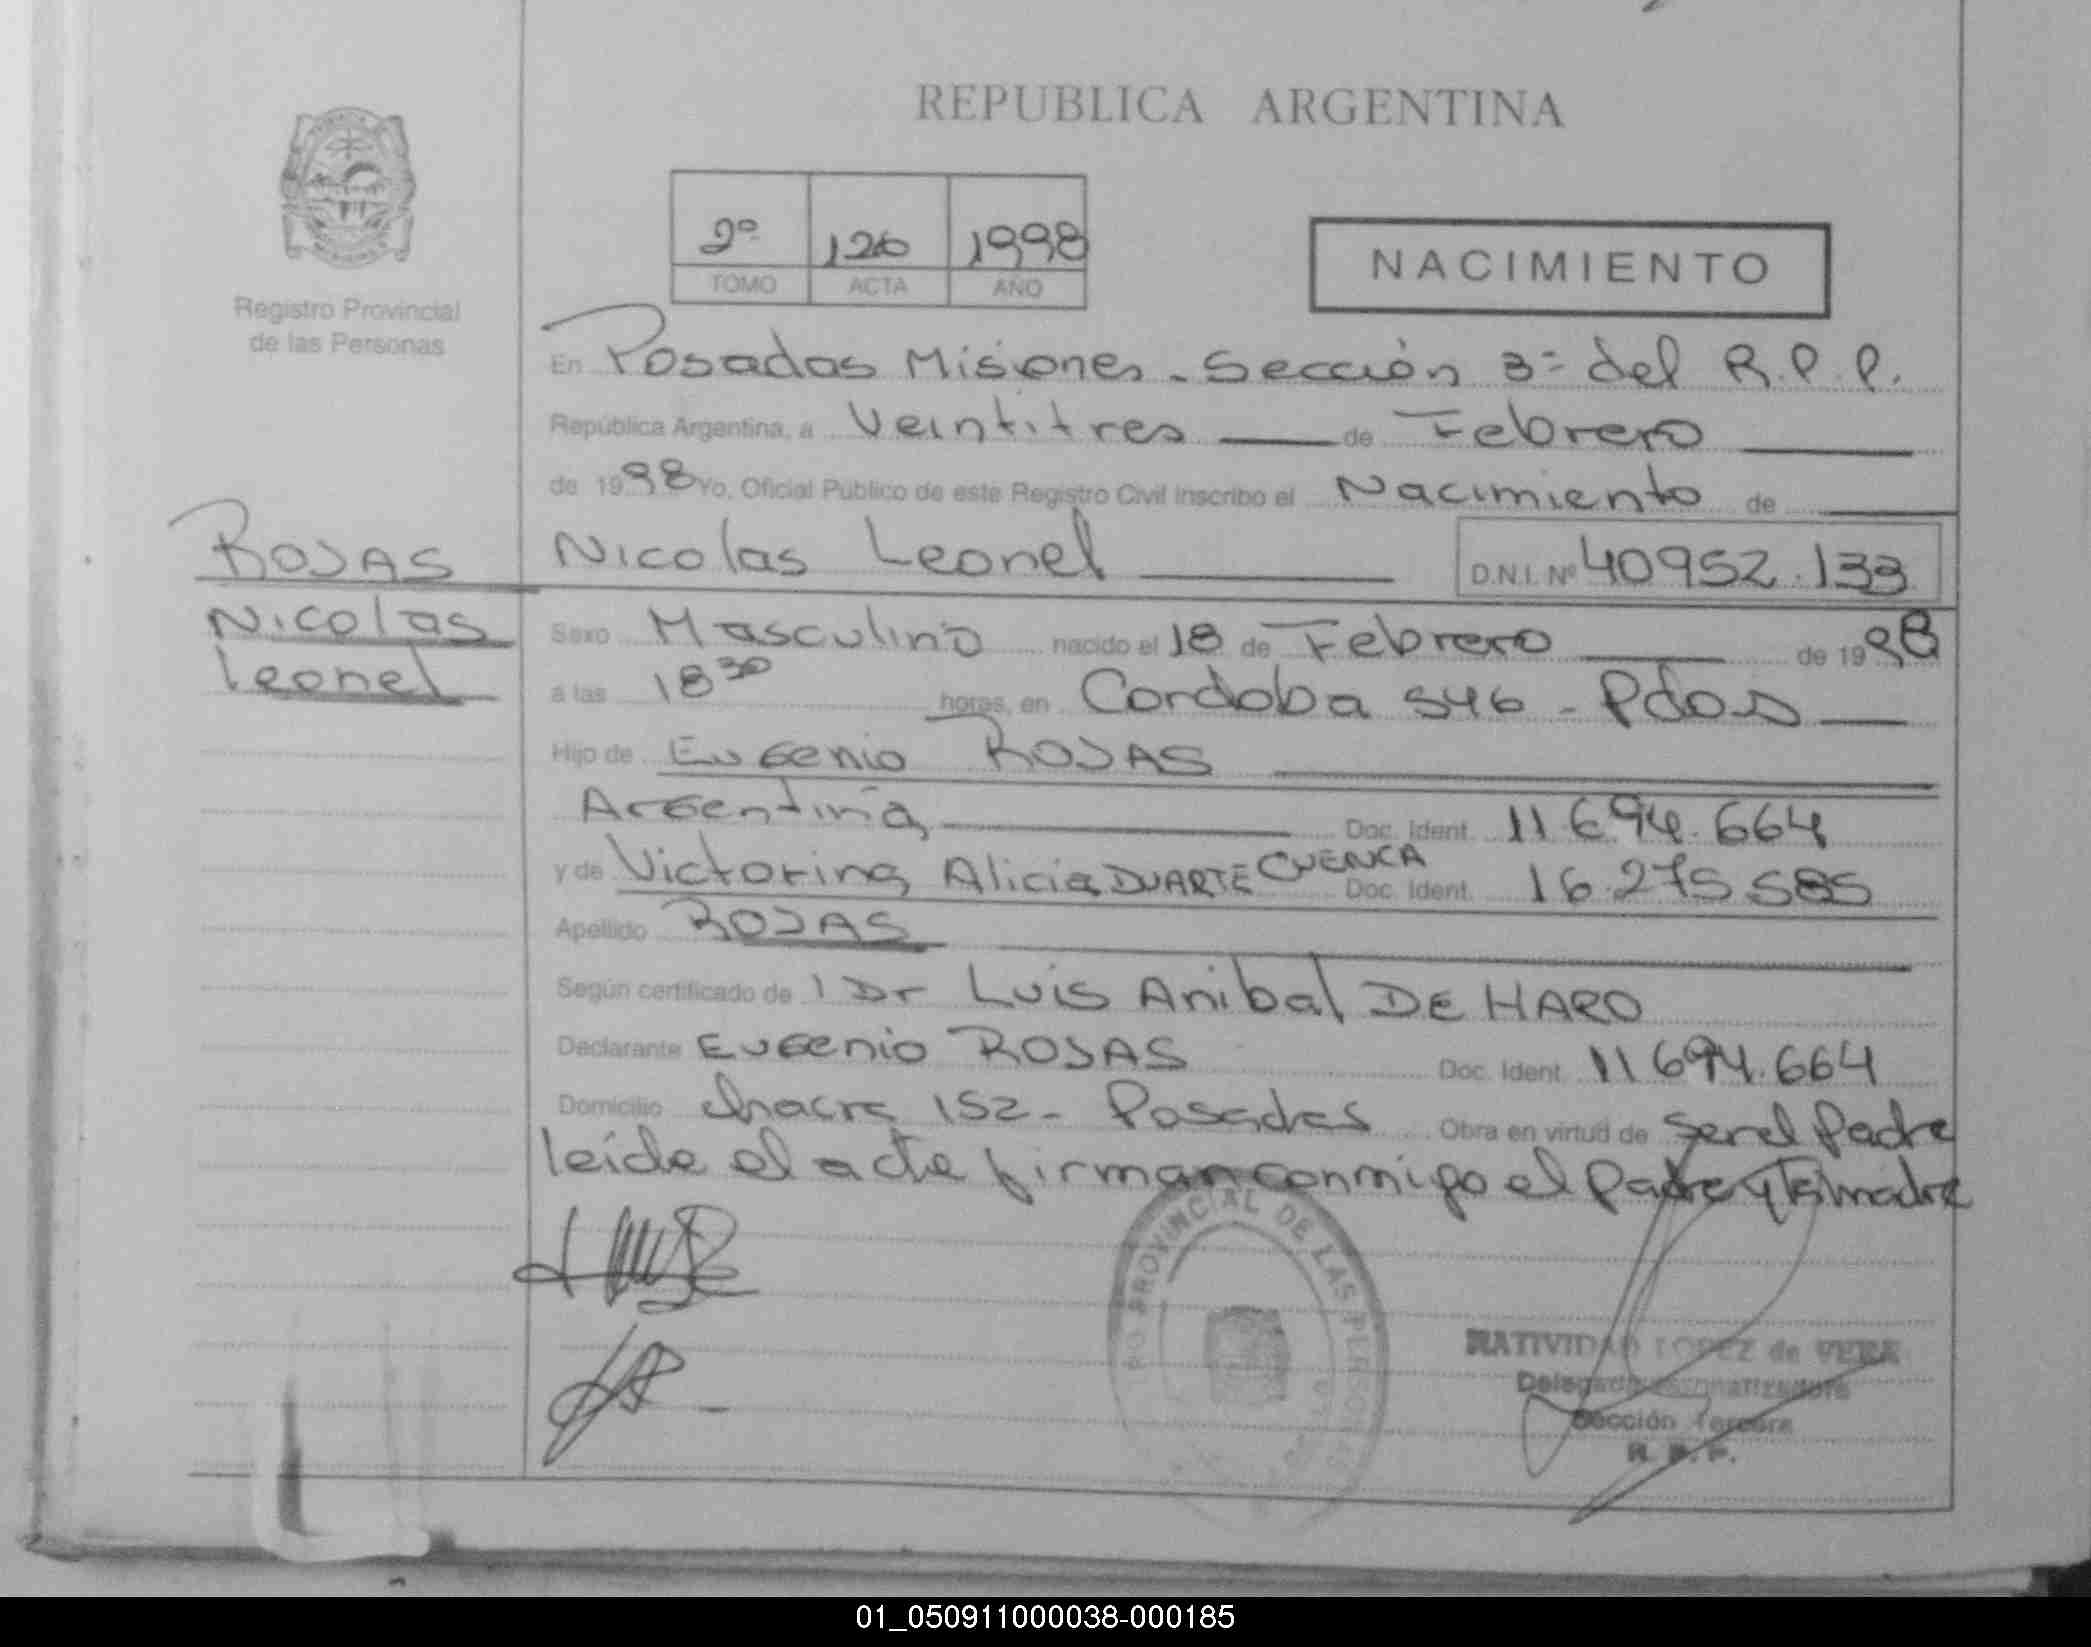 REPUBLICA ARGENTINA
2º 126 1998
TOMO ACTA AÑO
NACIMIENTO
Registro Provincial
de las Personas
En Posadas Misiones - Sección 3ª del R.P.P.
República Argentina, a Veintitres de Febrero
de 1998 Yo, Oficial Público de este Registro Civil inscribo el Nacimiento de
ROJAS
Nicolas
Leonel
Nicolas Leonel D.N.I. Nº 40952.133
Sexo Masculino nacido el 18 de Febrero de 1998
a las 18 30 horas, en Cordoba 546 - Pdas
Hijo de Eugenio ROJAS
Argentina Doc. Ident. 11 694.664
y de Victorina Alicia DUARTE CUENCA Doc. Ident. 16.275 585
Apellido ROJAS
Según certificado de l Dr Luis Anibal DE HARO
Declarante Eugenio ROJAS Doc. Ident. 11 694.664
Domicilio Chacra 152 - Posadas Obra en virtud de ser el Padre
leida el acta firman conmigo el Padre y la madre
RO PROVINCIAL DE LAS PERSONAS
NATIVIDAD LOPEZ de VERA
Delegada
Sección Tercera
R. P. P.
01_050911000038-000185